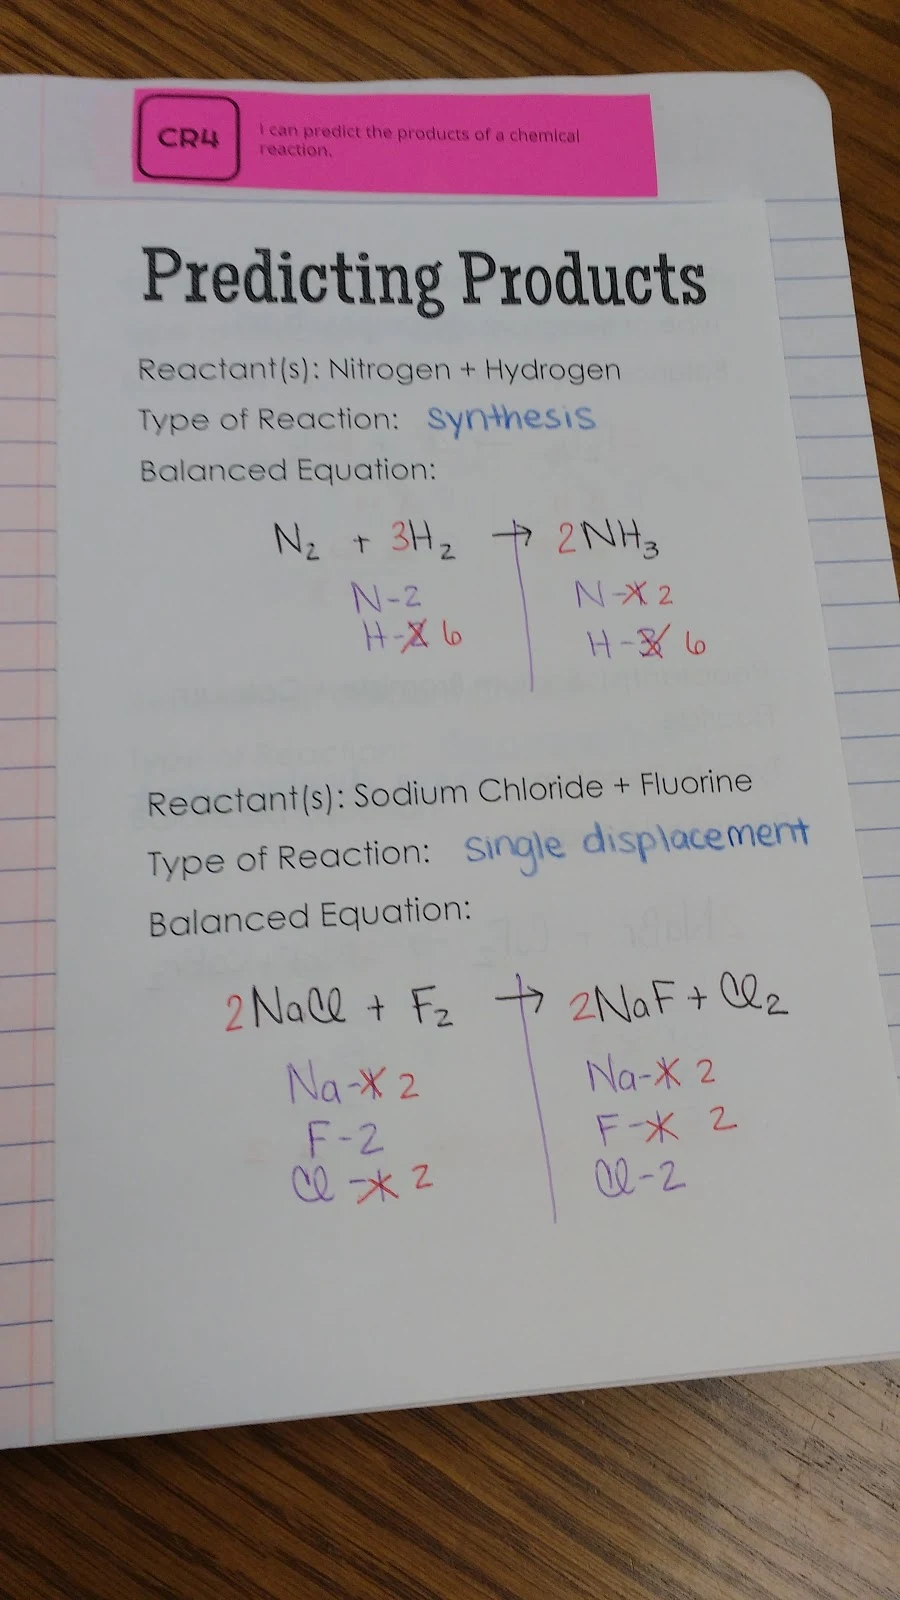 CR4
I can predict the products of a chemical
reaction.
Predicting Products
Reactant(s): Nitrogen + Hydrogen
Type of Reaction: synthesis
Balanced Equation:
N₂ + 3H₂ → 2NH₃
N-2 N-1 2
H-2 6 H-3 6
Reactant(s): Sodium Chloride + Fluorine
Type of Reaction: single displacement
Balanced Equation:
2NaCl + F₂ → 2NaF + Cl₂
Na-1 2 Na-1 2
F-2 F-1 2
Cl-1 2 Cl-2